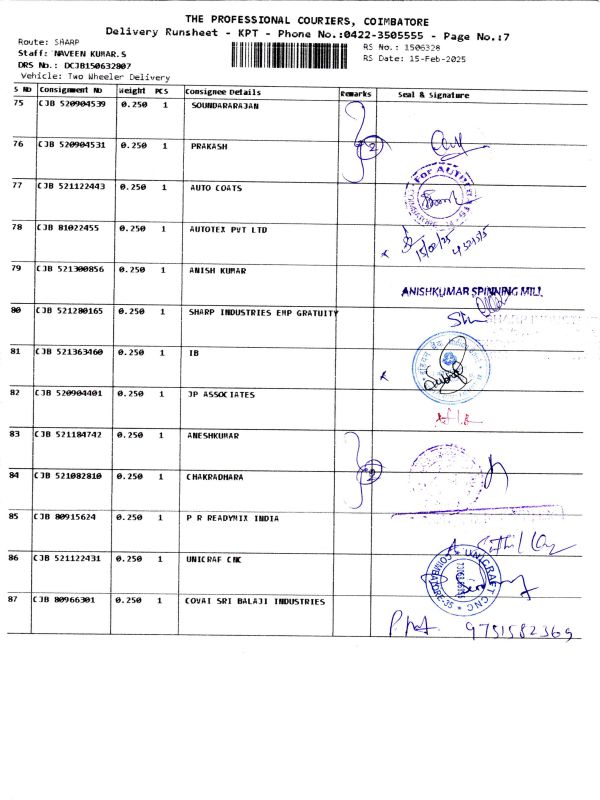 THE PROFESSIONAL COURIERS, COIMBATORE
Delivery Runsheet - KPT - Phone No.:0422-3505555 - Page No.:7
Route: SHARP
Staff: NAVEEN KUMAR.S
DRS No.: DCJB150632807
Vehicle: Two Wheeler Delivery
RS No.: 1506328
RS Date: 15-Feb-2025
S No Consignment No Weight PCS Consignee Details Remarks Seal & Signature
75 CJB 520904539 0.250 1 SOUNDARARAJAN
76 CJB 520904531 0.250 1 PRAKASH 2
77 CJB 521122443 0.250 1 AUTO COATS
78 CJB 81022455 0.250 1 AUTOTEX PVT LTD 15/02/25
79 CJB 521300856 0.250 1 ANISH KUMAR ANISHKUMAR SPINNING MILL
80 CJB 521280165 0.250 1 SHARP INDUSTRIES EMP GRATUITY
81 CJB 521363460 0.250 1 IB
82 CJB 520904401 0.250 1 JP ASSOCIATES
83 CJB 521184742 0.250 1 ANESHKUMAR
84 CJB 521082810 0.250 1 CHAKRADHARA 2
85 CJB 80915624 0.250 1 P R READYMIX INDIA
86 CJB 521122431 0.250 1 UNICRAF CNC UNICRAFT CNC COIMBATORE-35
87 CJB 80966301 0.250 1 COVAI SRI BALAJI INDUSTRIES 9751582369